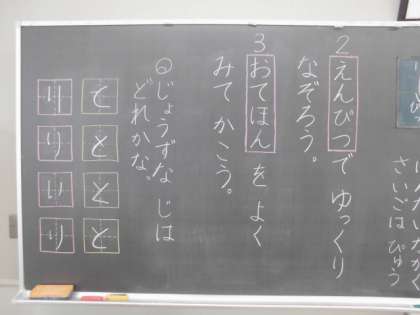 さいごは ぴゅう
2 えんぴつで ゆっくり
なぞろう。
3 おてほんを よく
みて かこう。
じょうずな じは
どれかな。
と
と
と
と
り
り
り
り